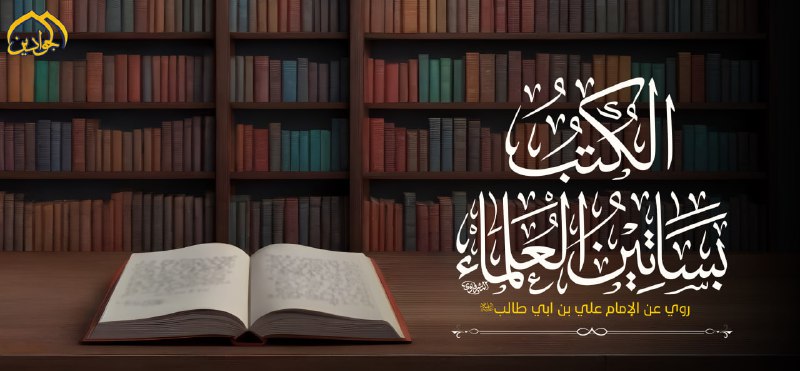 الجوادين
الكُتُبُ
بَسَاتِينُ العُلَمَاءِ
روي عن الإمام علي بن ابي طالب